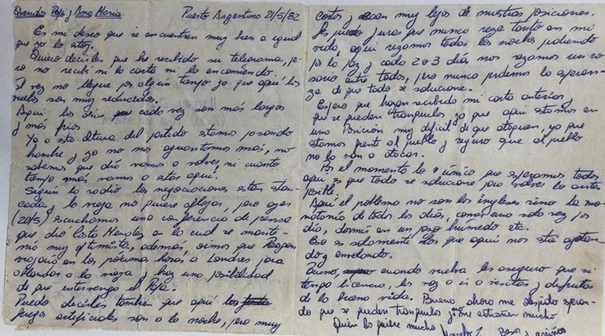 Querido Papá y Ana María Puerto Argentino 21/5/82
Es mi deseo que se encuentren muy bien a igual
que yo lo estoy.
Quiero decirles que he recibido su telegrama, pe-
ro no recibí ni la carta ni la encomienda.
Tal vez no llegue por algún tiempo ya que aquí los
vuelos son muy reducidos.
Aquí los días cada vez son más largos
y más fríos
Ya a esta altura del partido estamos pasando
hambre y ya no nos aguantamos más, no
sabemos que día vamos a volver ni cuanto
tiempo más vamos a estar aquí.
Según la radio las negociaciones están estan-
cadas y la vieja no quiere aflojar, pero ayer
20/5, escuchamos una conferencia de prensa
que dio Costa Mendez a lo cual se mante-
nía muy optimista, además, oímos que Reagan
viajará en las próximas horas a Londres para
ablandar a la vieja y hay una posibilidad
de que intervenga el Papa.
Puedo decirles también que aquí los
fuegos artificiales son a la noche, pero muy
cortos y caen muy lejos de nuestras posiciones.
Les puedo jurar que nunca recé tanto en mi
vida, aquí rezamos todas las noches pidiendo
por la paz y cada 2 o 3 días nos rezamos un ro-
sario entre todos, pero nunca perdemos la esperan-
za de que todo se solucione.
Espero que hayan recibido mi carta anterior,
que se queden tranquilos ya que aquí estamos en
una posición muy difícil de que ataquen, ya que
estamos frente al pueblo y seguro que al pueblo
no lo van a atacar.
En el momento lo único que esperamos todos
aquí es que todo se solucione para volver lo antes
posible.
Aquí el problema no son los ingleses sino la mo-
notonía de todos los días, comer una sola vez por
día, dormir en un pozo húmedo etc.
Eso es solamente lo que aquí nos está agotan-
do y matando.
Bueno, cuando vuelva les aseguro que si
tengo licencia, les voy a ir a visitar y disfrutar
de la buena vida. Bueno, ahora me despido esperan-
do que se queden tranquilos y no me extrañen mucho
Quien los quiere mucho Besos y cariños